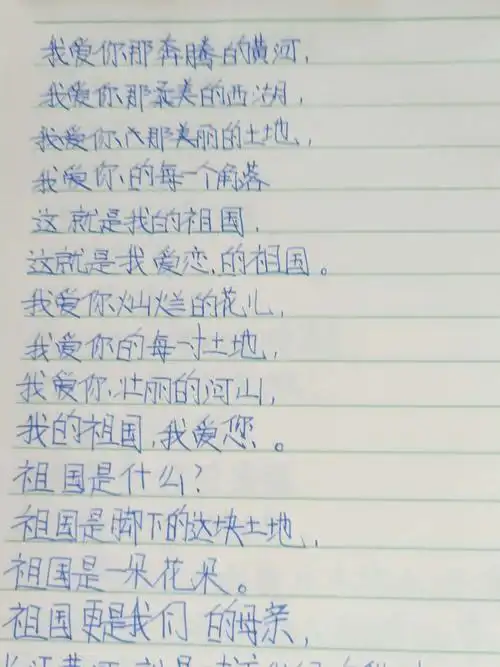 我爱你那奔腾的黄河，
我爱你那最美的西湖，
我爱你那美丽的土地，
我爱你的每一个角落
这就是我的祖国，
这就是我爱恋的祖国。
我爱你灿烂的花儿，
我爱你的每一寸土地，
我爱你壮丽的河山，
我的祖国，我爱您。
祖国是什么？
祖国是脚下的这块土地，
祖国是一朵花朵。
祖国更是我们的母亲，